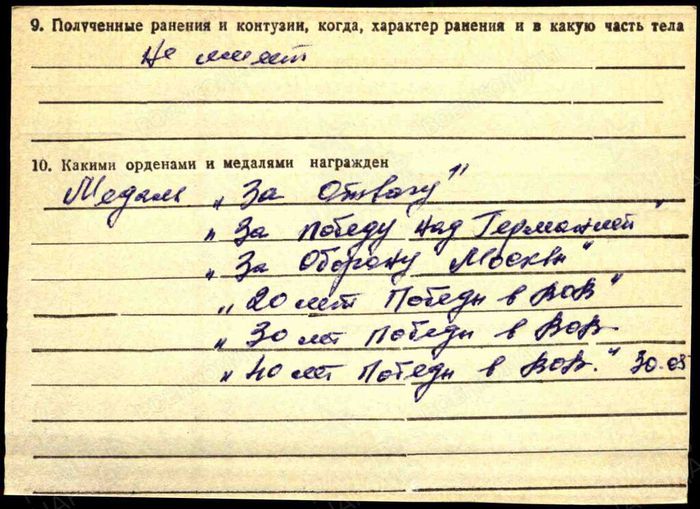 9. Полученные ранения и контузии, когда, характер ранения и в какую часть тела
Не имеет
10. Какими орденами и медалями награжден
Медаль „За Отвагу"
„За победу над Германией"
„За Оборону Москвы"
„20 лет Победы в ВОВ"
„30 лет Победы в ВОВ
„40 лет Победы в ВОВ." 30.03